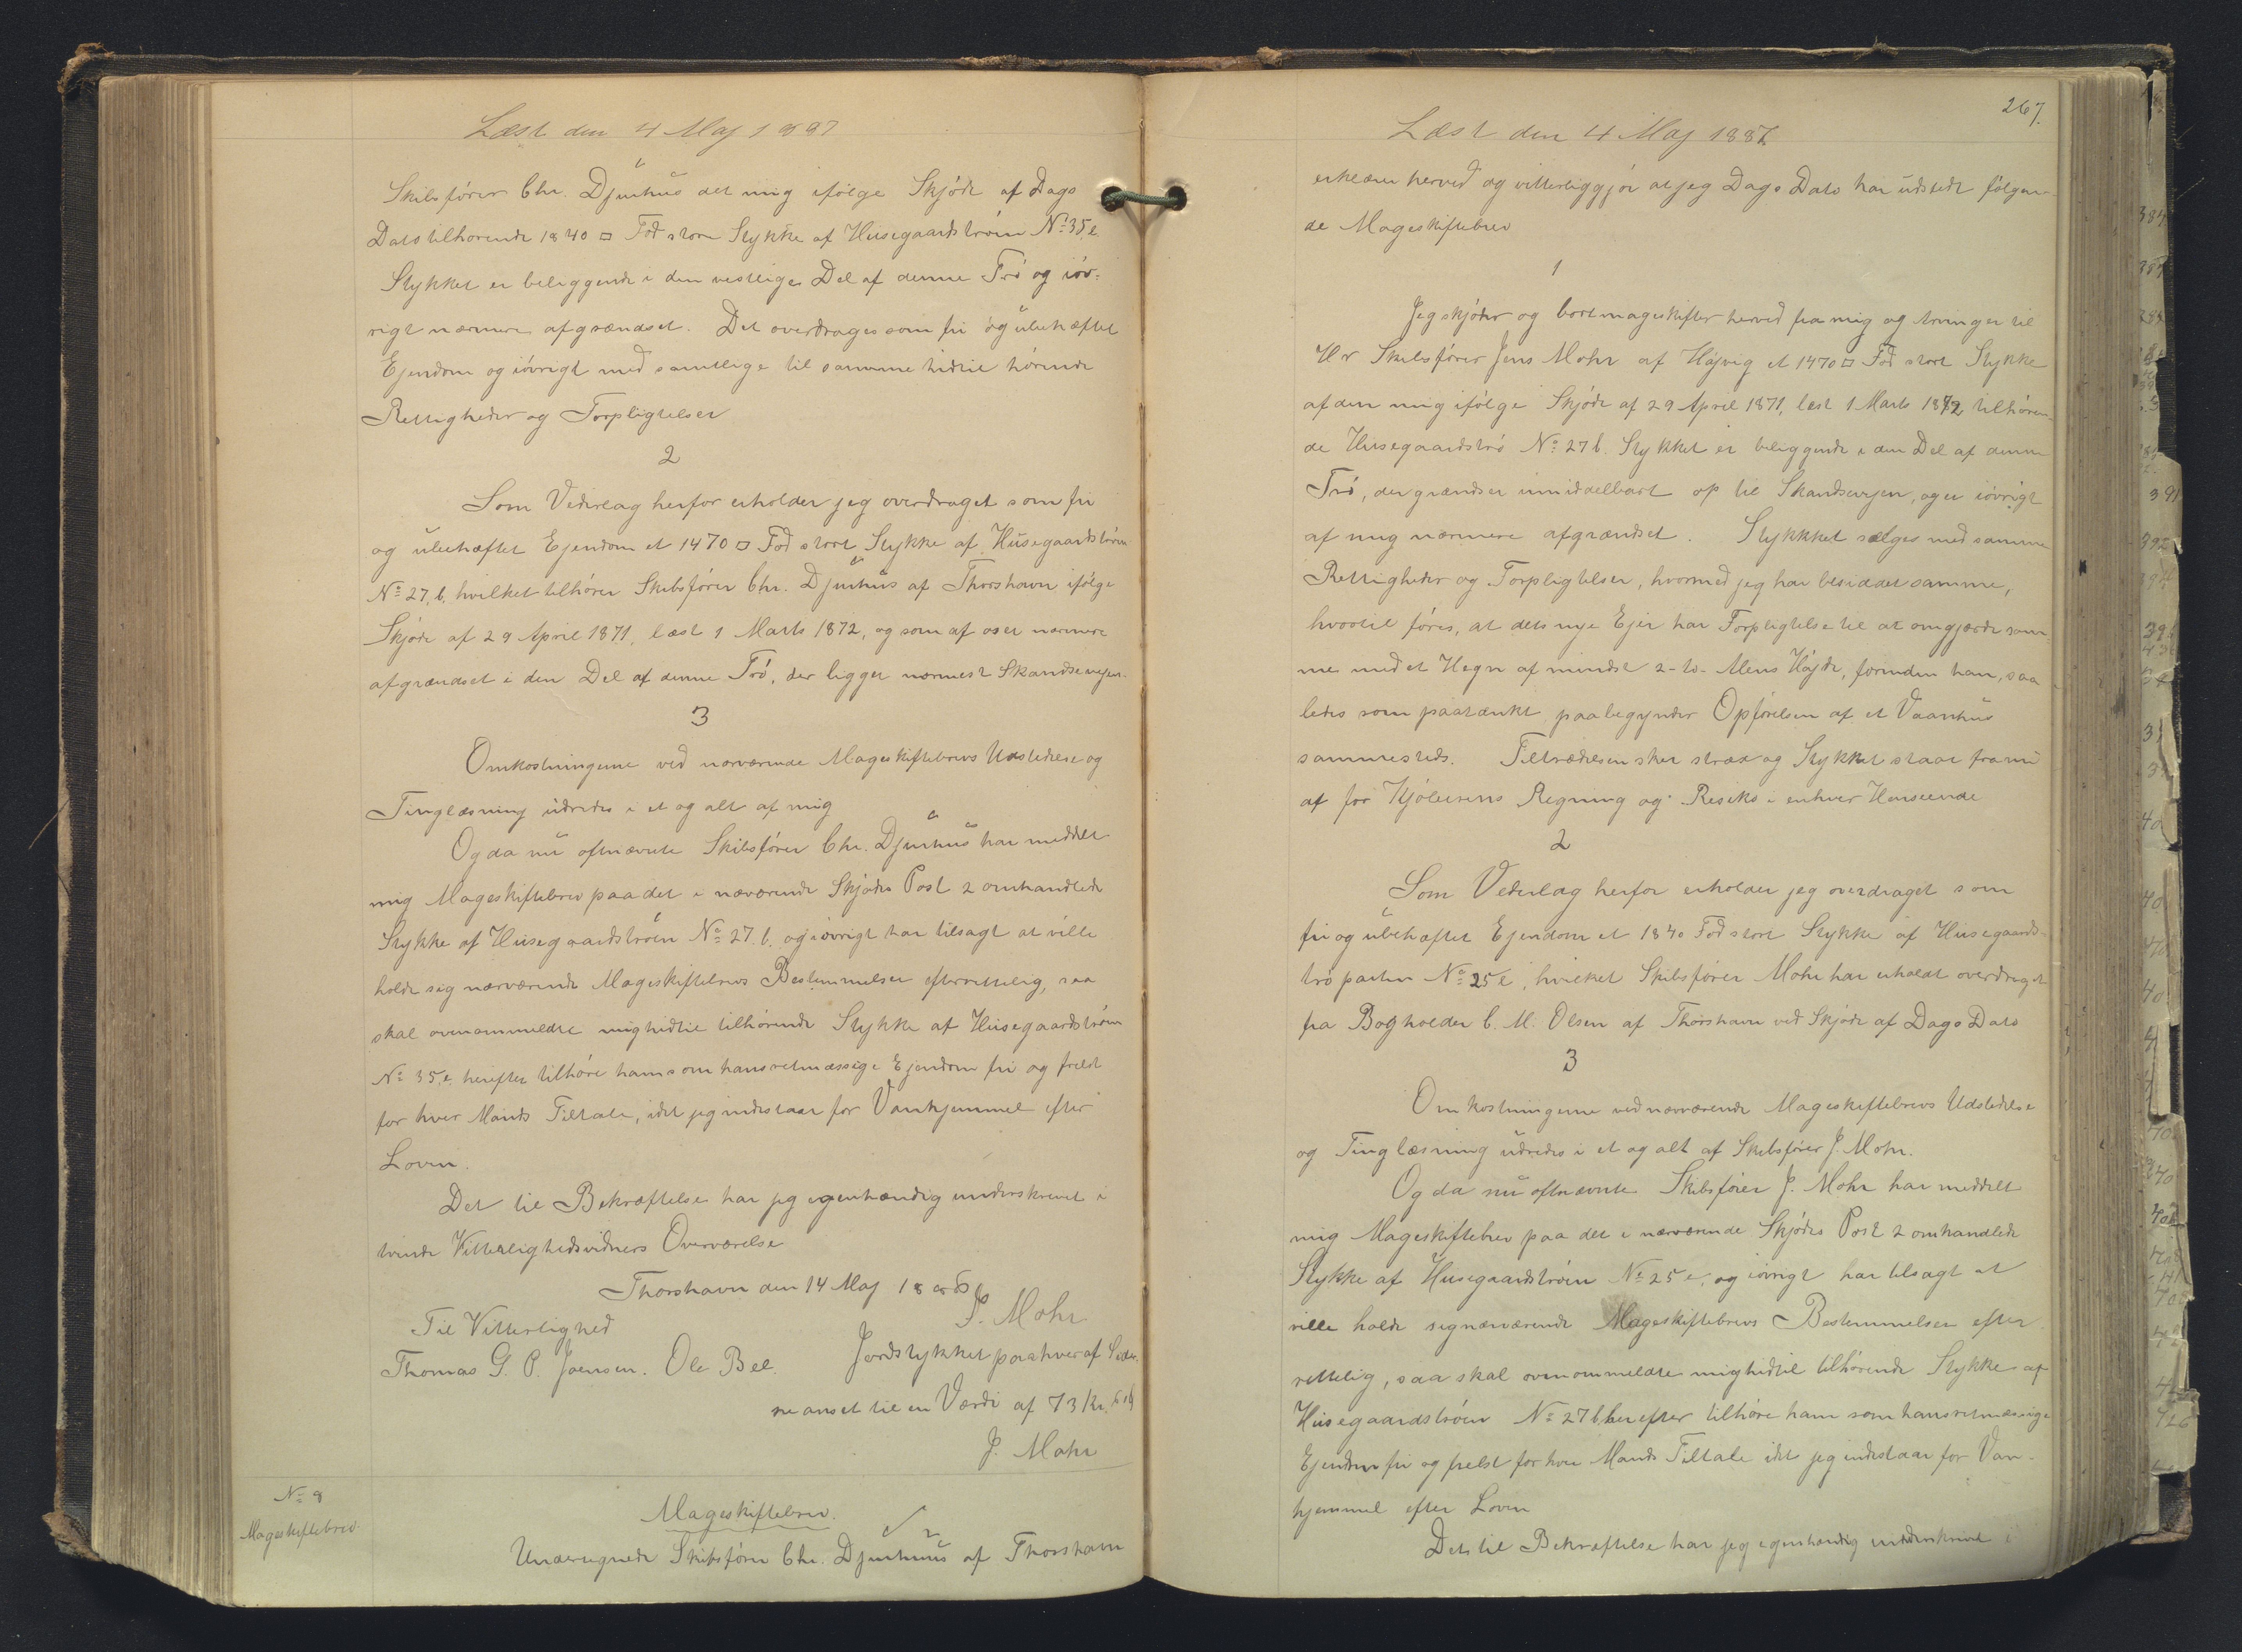 Læst den 4 Maj 1887
Skibsfører Chr. Djurhuus det mig ifølge Skjøde af Dags
Dato tilhørende 1840 □ Fod store Stykke af Husegaardstrøen No 35,e.
Stykket er beliggende i den vestlige Del af denne Trø og iøv-
rigt nærmere afgrændset. Det overdrages som fri og ubehæftet
Ejendom og iøvrigt med samtlige til samme hidtil hørende
Rettigheder og Forpligtelser
2
Som Vederlag herfor erholder jeg overdraget som fri
og ubehæftet Ejendom et 1470 □ Fod stort Stykke af Husegaardstrøen
No 27,b. hvilket tilhører Skibsfører Chr. Djurhuus af Thorshavn ifølge
Skjøde af 29 April 1871, læst 1 Marts 1872, og som af os er nærmere
afgrændset i den Del af denne Trø, der ligger nærmest Skandsevejen.
3
Omkostningerne ved nærværende Mageskiftebrevs Udstedelse og
Tinglæsning udredes i et og alt af mig
Og da nu oftnævnte Skibsfører Chr. Djurhuus har meddelt
mig Mageskiftebrev paa det i nærværende Skjødes Post 2 omhandlede
Stykke af Husegaardstrøen No 27.b. og iøvrigt har tilsagt at ville
holde sig nærværende Mageskiftebrevs Bestemmelser efterrettelig, saa
skal ovenommeldte mig hidtil tilhørende Stykke af Husegaardstrøen
No 35,e. herefter tilhøre ham som hans retmæssige Ejendom fri og frelst
for hver Mands Tiltale, idet jeg indestaar for Vanhjemmel efter
Loven.
Det til Bekræftelse har jeg egenhændig underskrevet i
tvende Vitterlighedsvidners Overværelse
Thorshavn den 14 Maj 1886
J. Mohr
Til Vitterlighed
Thomas G. P. Joensen. Ole Bel.
Jordstykket paa hver af Sider-
ne anset til en Værdi af 73 Kr.
J. Mohr
No 8
Mageskiftebrev
Mageskiftebrev.
Undertegnede Skibsfører Chr. Djurhuus af Thorshavn
267.
Læst den 4 Maj 1887
erklærer herved og vitterliggjør at jeg Dags Dato har udstedt følgen-
de Mageskiftebrev
1
Jeg skjøder og bortmageskifter herved fra mig og Arvinger til
Hr Skibsfører Jens Mohr af Højvig et 1470 □ Fod stort Stykke
af den mig ifølge Skjøde af 29 April 1871, læst 1 Marts 1872, tilhøren-
de Husegaardstrø No 27b. Stykket er beliggende i den Del af denne
Trø, der grændser umiddelbart op til Skandsevejen, og er iøvrigt
af mig nærmere afgrændset. Stykkket sælges med samme
Rettigheder og Forpligtelser, hvormed jeg har besiddet samme,
hvortil føres, at dets nye Ejer har Forpligtelse til at omgjærde sam-
me med et Hegn af mindst 2-to- Alens Højde, forinden han, saa
ledes som paatænkt paabegynder Opførelsen af et Vaanhus
sammesteds. Tiltrædelsen sker strax og Stykket staar fra nu
af for Kjøberens Regning og Risiko i enhver Henseende
2
Som Vederlag herfor erholder jeg overdraget som
fri og ubehæftet Ejendom et 1840 Fod stort Stykke af Husegaards-
trø parten No 25 e, hvilket Skibsfører Mohr har erholdt overdraget
fra Bogholder C. M. Olsen af Thorshavn ved Skjøde af Dags Dato
3
Omkostningerne ved nærværende Mageskiftebrevs Udstedelse
og Tinglæsning udredes i et og alt af Skibsfører J. Mohr.
Og da nu oftnævnte Skibsfører J. Mohr har meddelt
mig Mageskiftebrev paa det i nærværende Skjødes Post 2 omhandlede
Stykke af Husegaardstrøen No 25 e. og iøvrigt har tilsagt at
ville holde sig nærværende Mageskiftebrevs Bestemmelser efter
rettelig, saa skal ovenommeldte mig hidtil tilhørende Stykke af
Husegaardstrøen No 27b, herefter tilhøre ham som hans retmæssige
Ejendom fri og frelst for hver Mands Tiltale idet jeg indestaar for Van-
hjemmel efter Loven
Det til Bekræftelse har jeg egenhændig underskrevet i